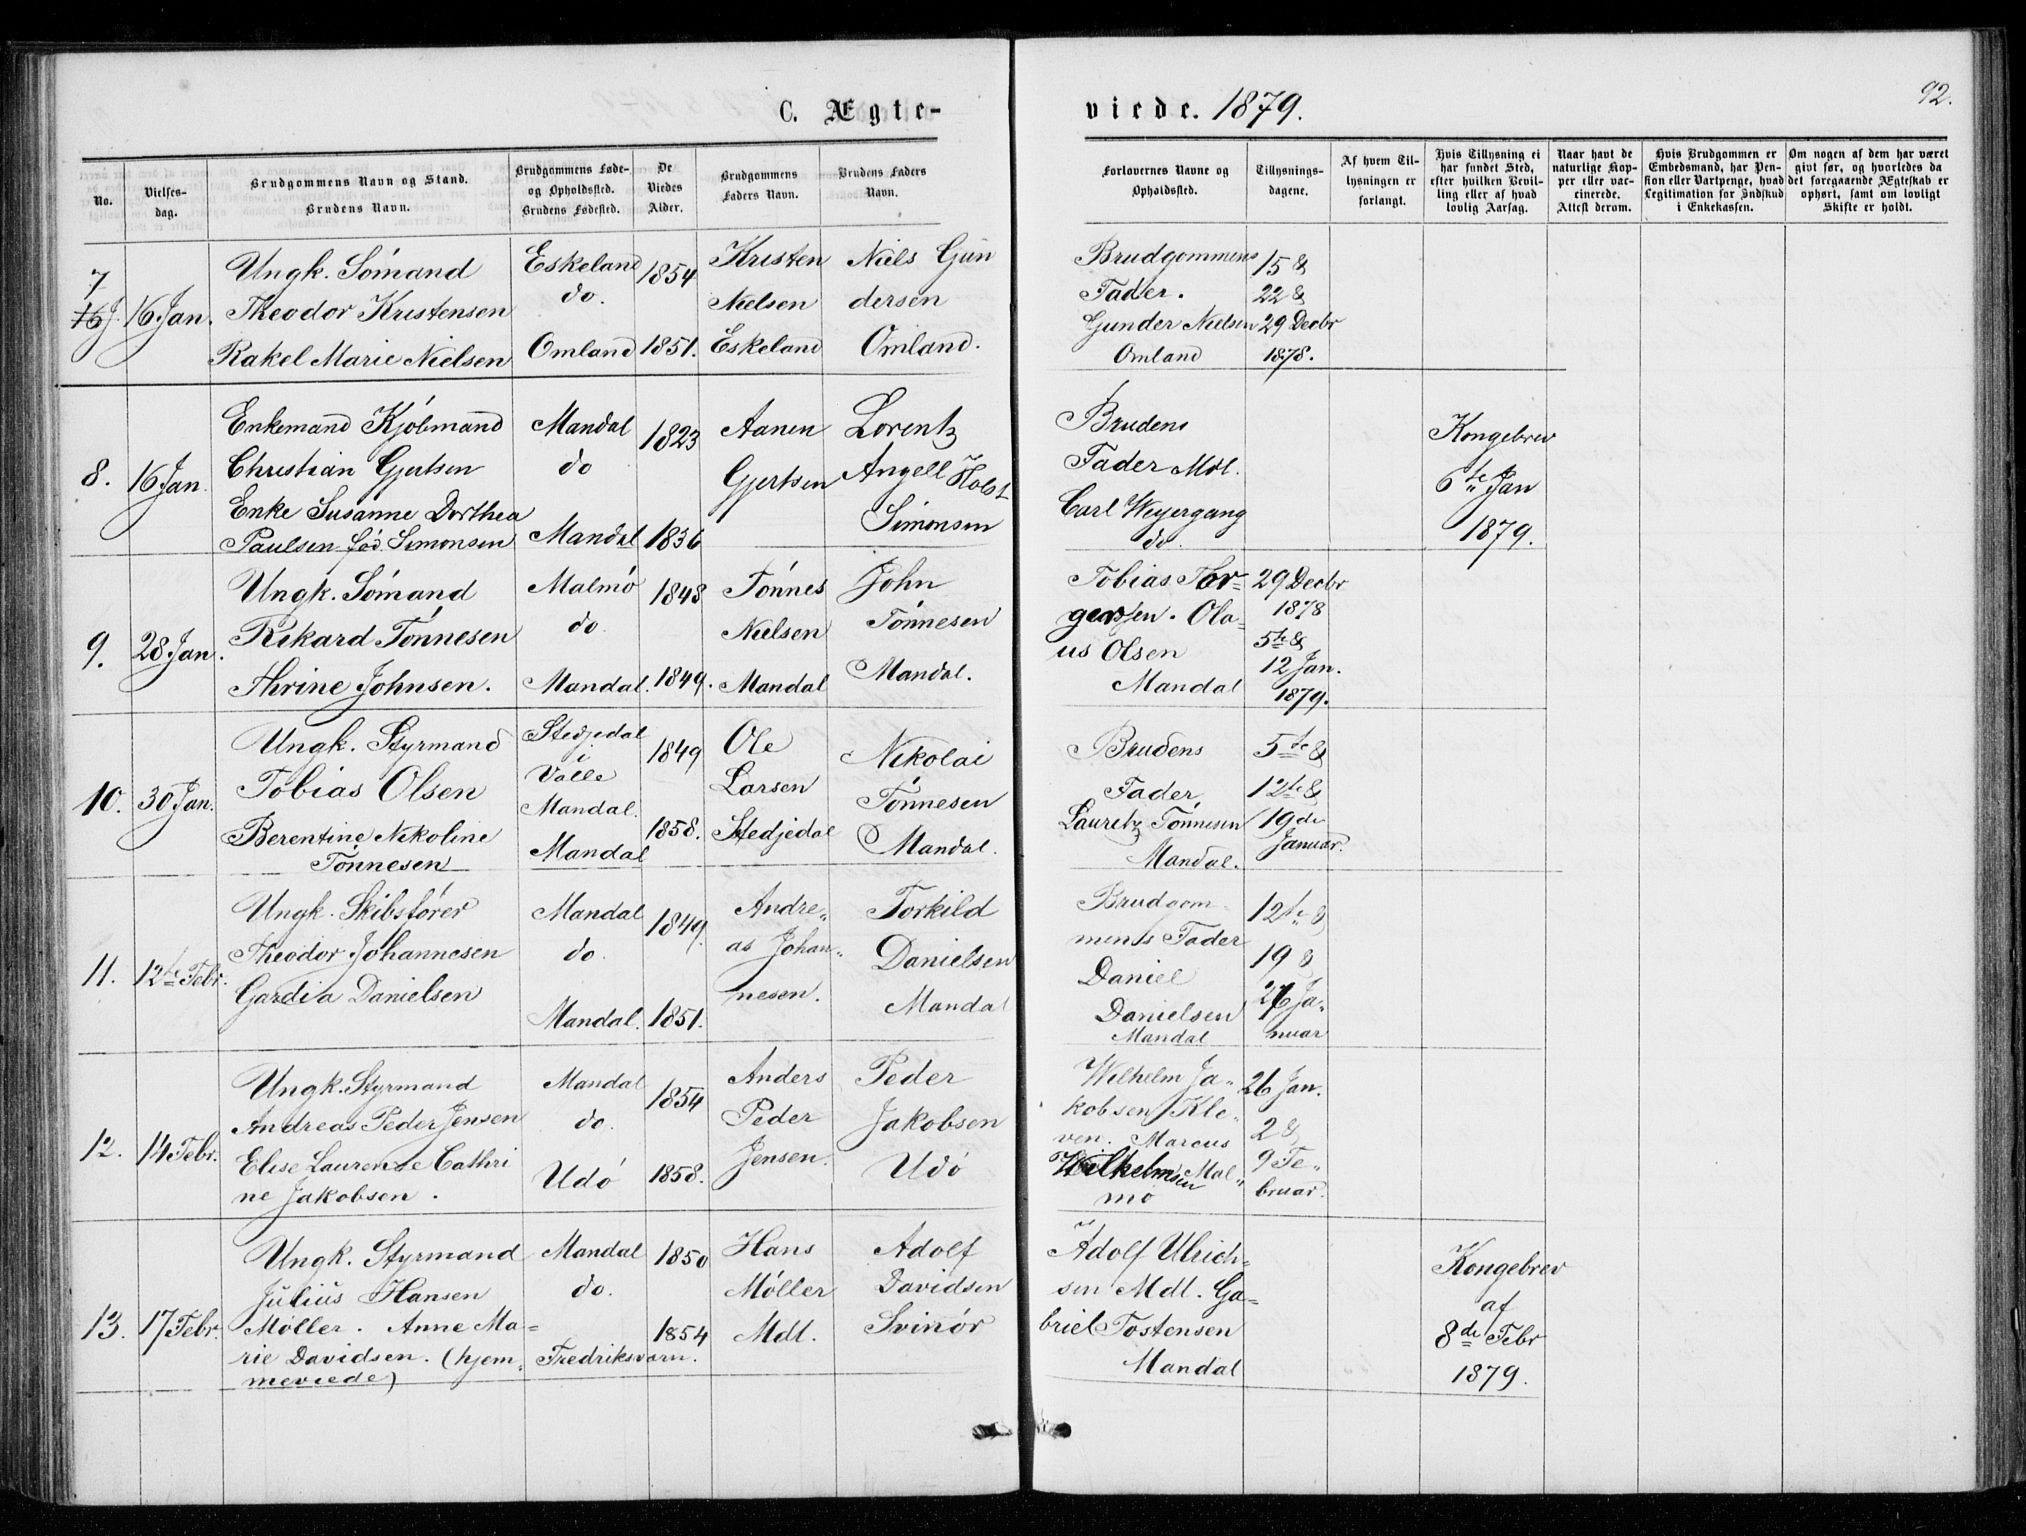 92.
C. Ægte-
viede. 1879.
No.
Vielses-
dag.
Brudgommens Navn og Stand.
Brudens Navn.
Brudgommens Føde-
og Opholdssted.
Brudens Fødested.
De
Viedes
Alder.
Brudgommens
Faders Navn.
Brudens Faders
Navn.
Forlovernes Navne og
Opholdssted.
Tillysnings-
dagene.
Af hvem Til-
lysningen er
forlangt.
Hvis Tillysning ei
har fundet Sted,
efter hvilken Bevil-
ling eller af hvad
lovlig Aarsag.
Naar havt de
naturlige Kop-
per eller vac-
cinerede.
Attest derom.
Hvis Brudgommen er
Embedsmand, har Pen-
sion eller Vartpenge, hvad
Legitimation for Indskud
i Enkekassen.
Om nogen af dem har været
givt før, og hvorledes da
det foregaaende Ægteskab er
ophørt, samt om lovligt
Skifte er holdt.
7
16 J.
16 Jan.
Ungk. Sömand
Theodor Kristensen
Rakel Marie Nielsen
Eskeland
do.
Omland
1854
1851.
Kristen
Nielsen
Eskeland
Niels Gun
dersen
Omland.
Brudgommens
Fader.
Gunder Nielsen
Omland
15 &
22 &
29 Decbr
1878.
8.
16 Jan.
Enkemand Kjöbmand
Christian Gjertsen
Enke Susanne Dorthea
Paulsen fød. Simonsen
Mandal
do
Mandal
1823
1836
Aanen
Gjertsen
Lorentz
Angell Holst
Simonsen
Brudens
Fader Mdl.
Carl Weyergang
do.
Kongebrev
6te Jan
1879.
9.
28 Jan.
Ungk. Sömand
Rikard Tönnesen
Thrine Johnsen.
Malmö
do.
Mandal.
1848
1849.
Tönnes
Nielsen
Mandal
John
Tönnesen
Mandal.
Tobias Tor=
gersen. Ola=
us Olsen
Mandal
29 Decbr
1878
5te &
12 Jan.
1879.
10.
30 Jan.
Ungk. Styrmand
Tobias Olsen
Berentine Nikoline
Tönnesen
Stedjedal
i
Valle
Mandal.
Mandal
1849
1858.
Ole
Larsen
Stedjedal
Nikolai
Tönnesen
Mandal.
Brudens
Fader
Lauretz Tönnesen
Mandal.
5te &
12te &
19de
Januar.
11.
12te Febr.
Ungk. Skibsförer
Theodor Johannesen
Gardia Danielsen
Mandal
do.
Mandal.
1849.
1851.
Andre„
as Johan„
nesen.
Torkild
Danielsen
Mandal
Brudgom
mens Fader
Daniel
Danielsen
Mandal
12te &
19 &
26 Ja„
nuar
12.
14 Febr.
Ungk. Styrmand
Andreas Peder Jensen
Elise Laurentse Cathri
ne Jakobsen.
Mandal
do.
Udö
1854
1858.
Anders
Peder
Jensen.
Peder
Jakobsen
Udö
Wilhelm Ja„
kobsen Kle„
ven. Marcus
Wilhelmsen Mal„
mö
26 Jan.
2 &
9 Fe„
bruar.
13.
17 Febr.
Ungk. Styrmand
Julius Hansen
Møller. Anne Ma=
rie Davidsen. (hjem„
meviede)
Mandal
do.
Fredriksværn.
1850
1854
Hans
Møller
Mdl.
Adolf
Davidsen
Svinör
Adolf Ulrich=
sen Mdl. Ga=
briel Tostensen
Mandal
Kongebrev
af
8de Febr
1879.